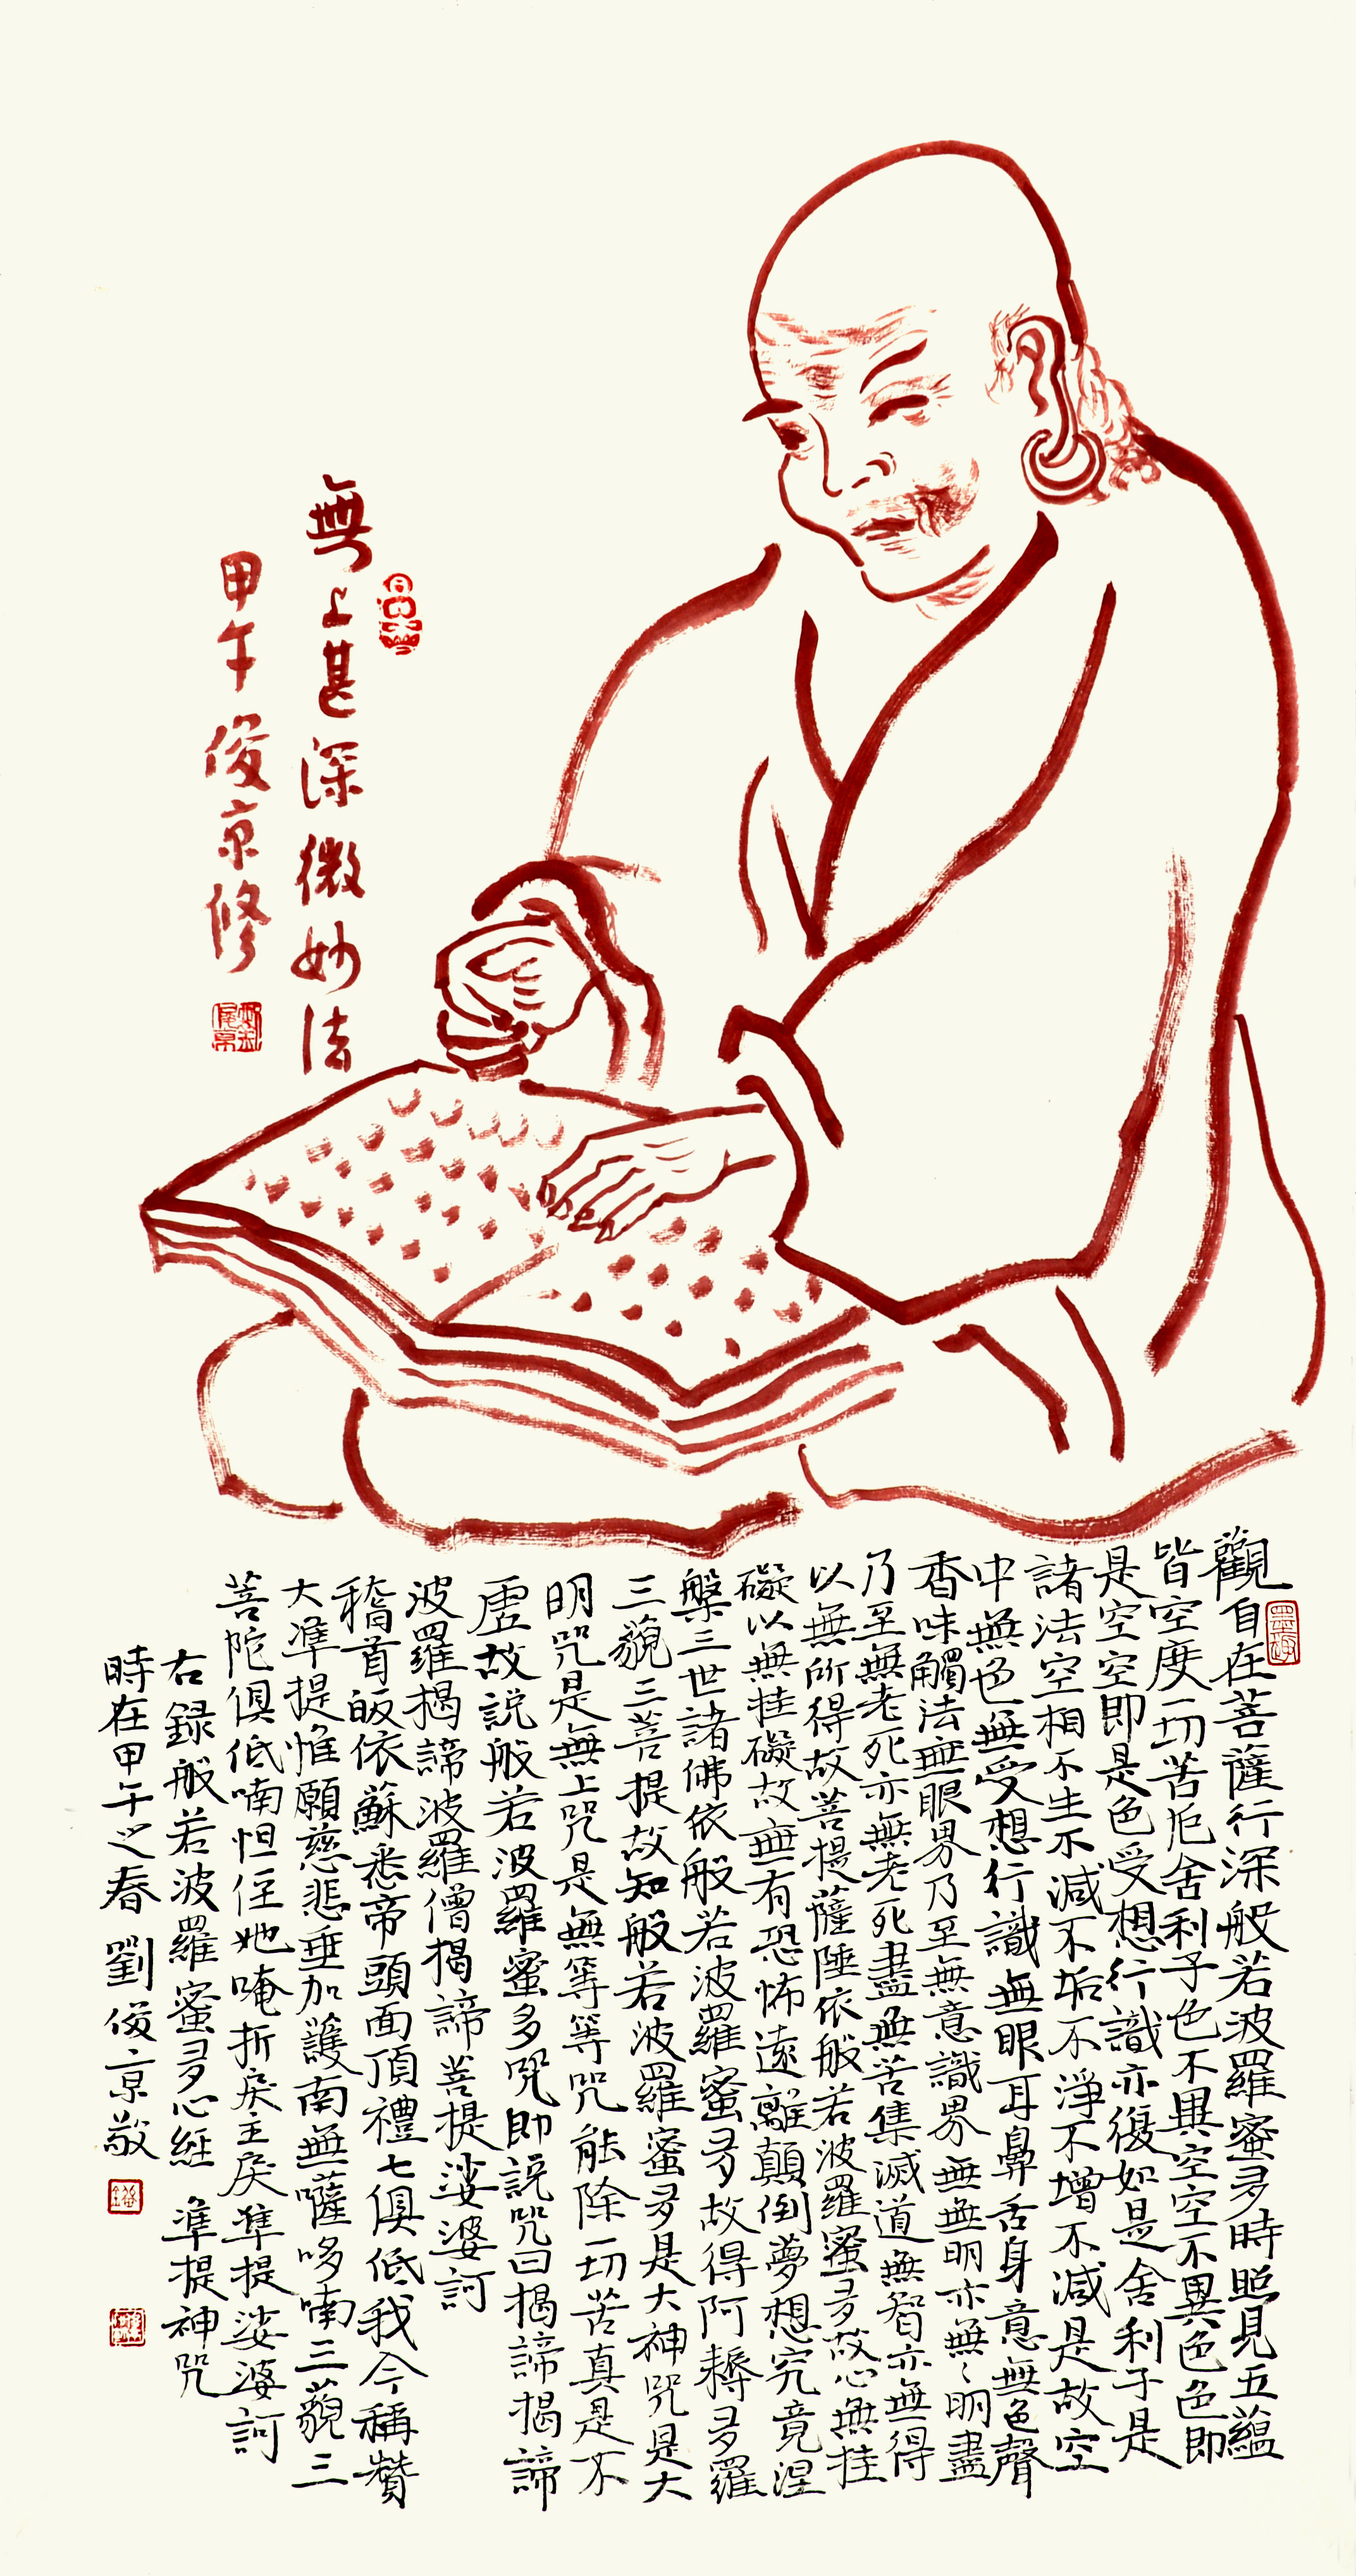 無上甚深微妙法
甲午俊京修
觀自在菩薩行深般若波羅蜜多時照見五蘊
皆空度一切苦厄舍利子色不異空空不異色色即
是空空即是色受想行識亦復如是舍利子是
諸法空相不生不滅不垢不淨不增不減是故空
中無色無受想行識無眼耳鼻舌身意無色聲
香味觸法無眼界乃至無意識界無無明亦無〻明盡
乃至無老死亦無老死盡無苦集滅道無智亦無得
以無所得故菩提薩埵依般若波羅蜜多故心無挂
礙以無挂礙故無有恐怖遠離顛倒夢想究竟涅
槃三世諸佛依般若波羅蜜多故得阿耨多羅
三藐三菩提故知般若波羅蜜多是大神咒是大
明咒是無上咒是無等等咒能除一切苦真是不
虛故説般若波羅蜜多咒即説咒曰揭諦揭諦
波羅揭諦波羅僧揭諦菩提娑婆訶
稽首皈依蘇悉帝頭面頂禮七俱低我今稱贊
大準提惟願慈悲垂加護南無薩哆喃三藐三
菩陀俱低喃怛侄她唵折戾主戾準提娑婆訶
右録般若波羅蜜多心經 準提神咒
時在甲午之春劉俊京敬